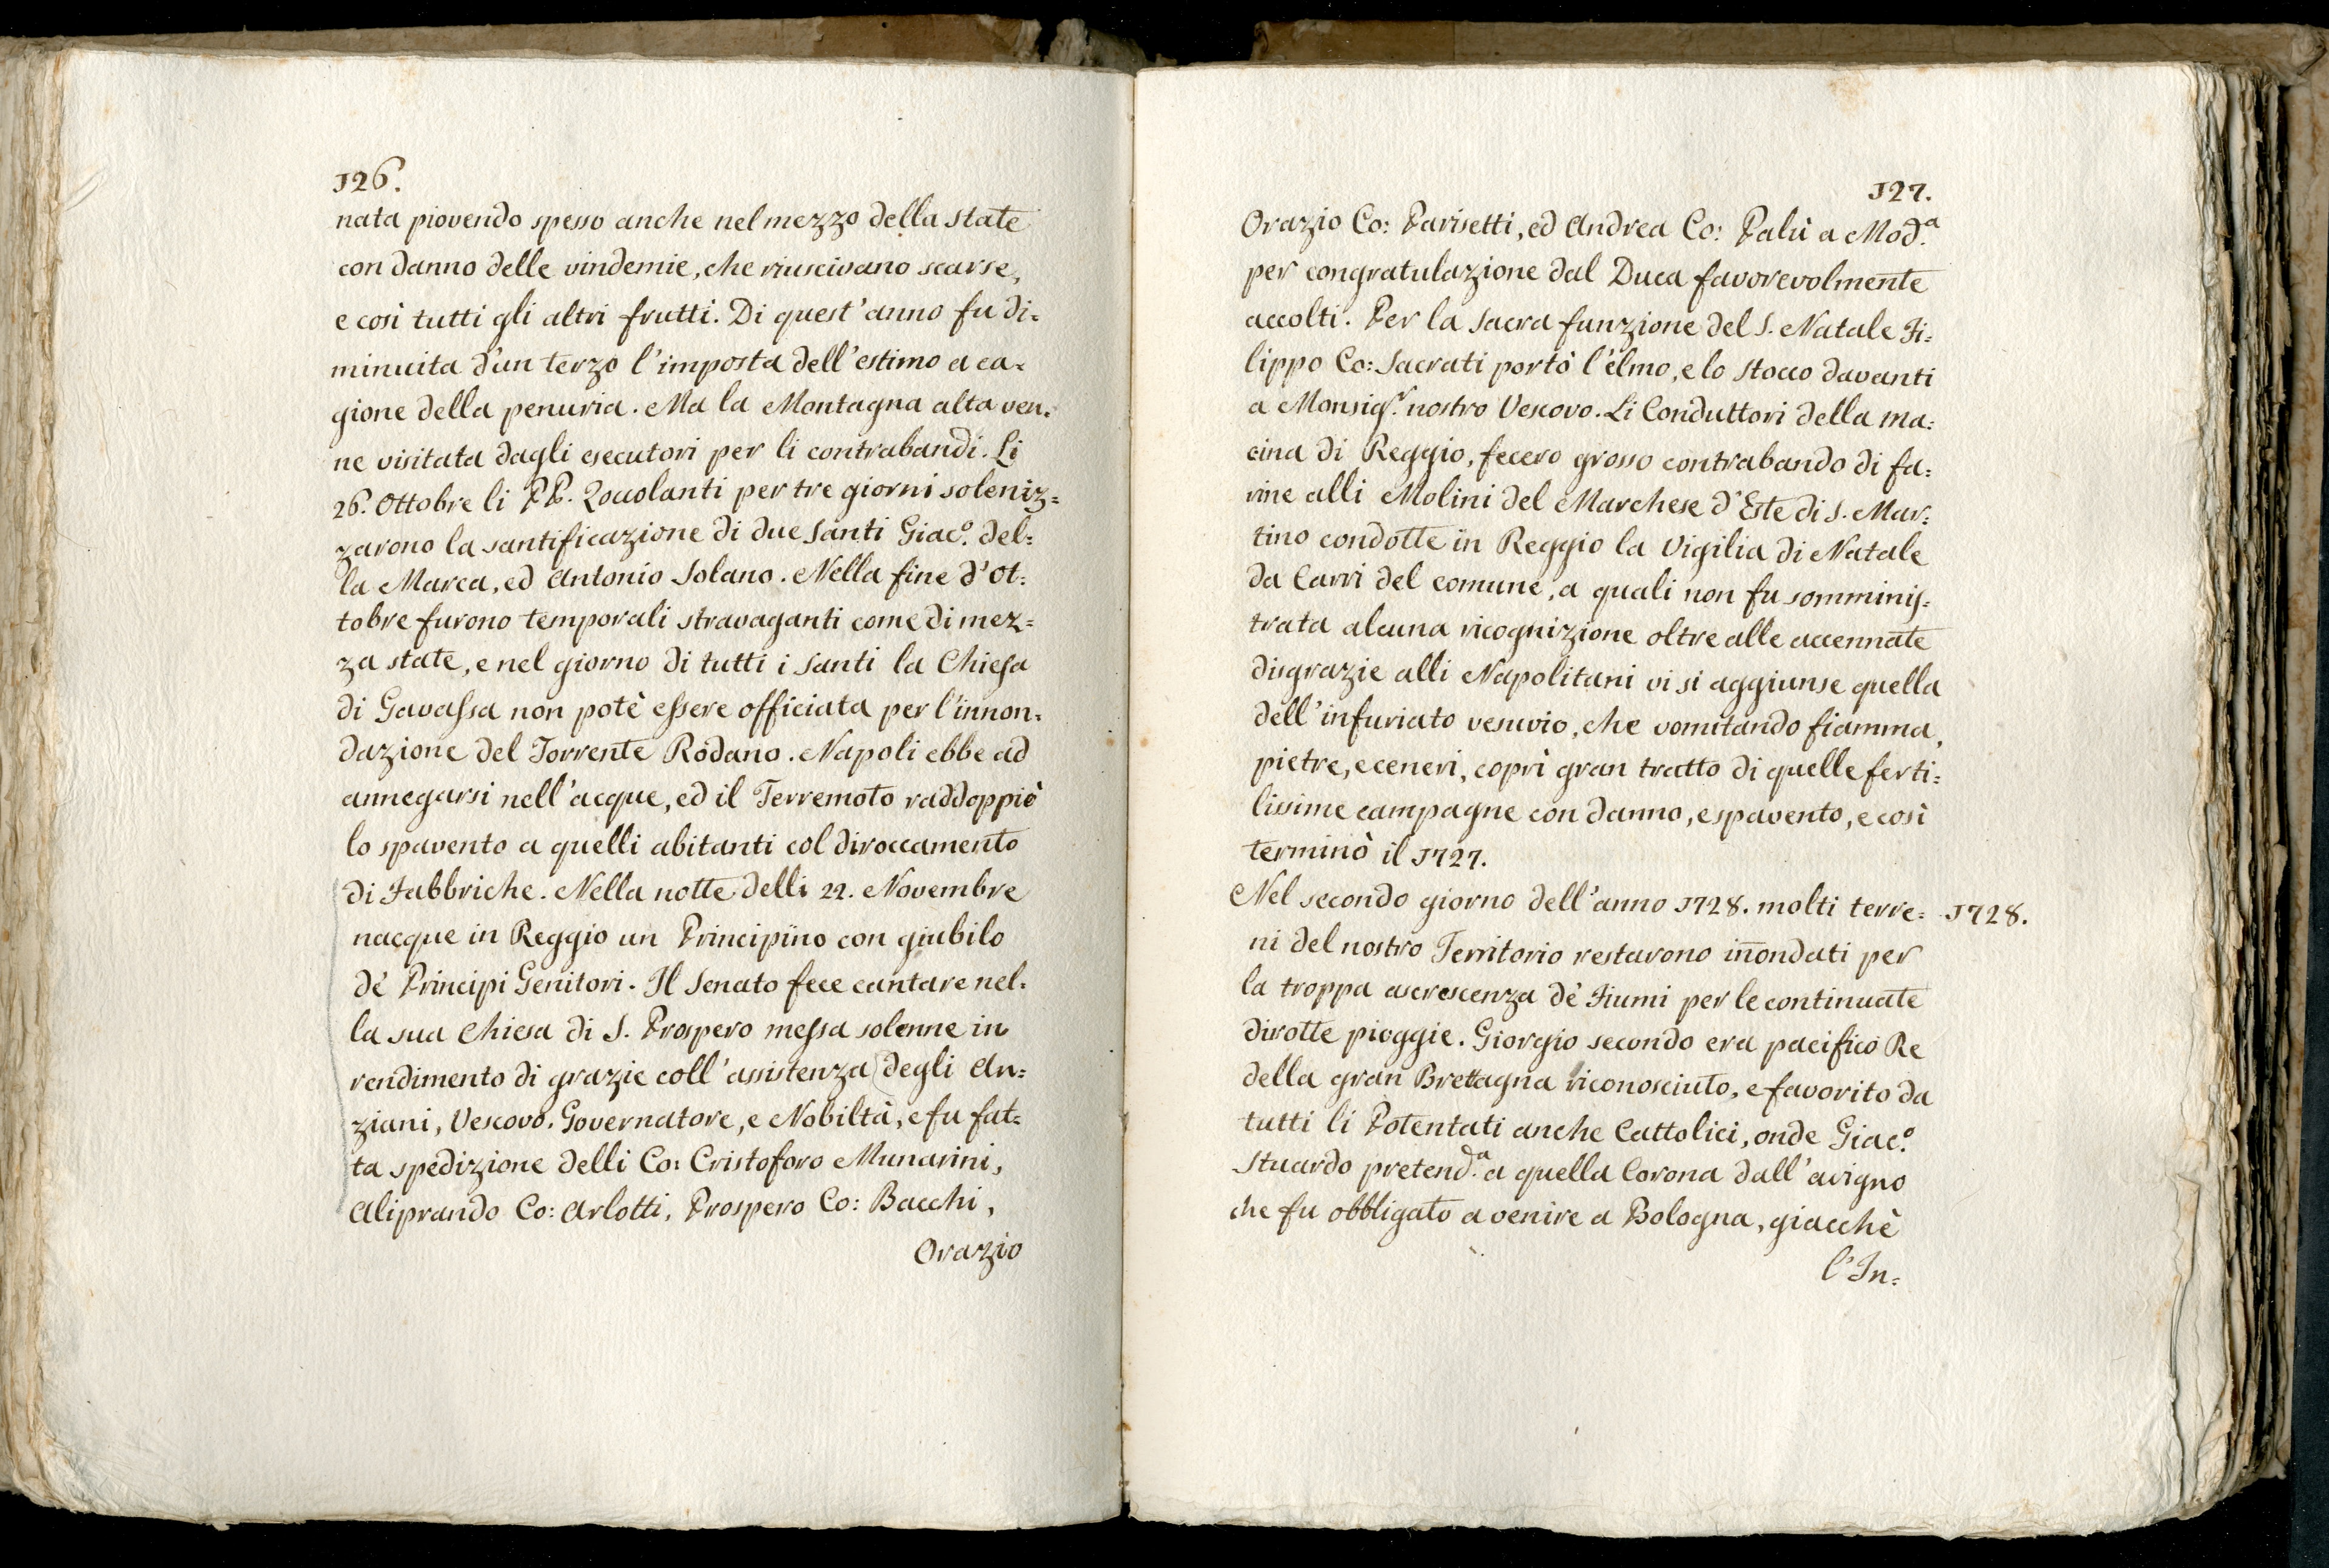 126.
nata piovendo spesso anche nel mezzo della state
con danno delle vindemie, che riuscivano scarse,
e così tutti gli altri frutti. Di quest'anno fu di=
minuita d'un terzo l'imposta dell'estimo a ca=
gione della penuria. Ma la Montagna alta ven=
ne visitata dagli esecutori per li contrabandi. Li
26. Ottobre li PP. Zoccolanti per tre giorni soleniz=
zarono la santificazione di due Santi Giac.º del=
la Marca, ed Antonio Solano. Nella fine d'Ot=
tobre furono temporali stravaganti come di mez=
za state, e nel giorno di tutti i Santi la Chiesa
di Gavassa non potè essere officiata per l'innon=
dazione del Torrente Rodano. Napoli ebbe ad
annegarsi nell'acque, ed il Terremoto raddoppiò
lo spavento a quelli abitanti col diroccamento
di Fabbriche. Nella notte delli 22. Novembre
nacque in Reggio un Principino con giubilo
de' Principi Genitori. Il Senato fece cantare nel=
la sua Chiesa di S. Prospero messa solenne in
rendimento di grazie coll'assistenza degli An=
ziani, Vescovo, Governatore, e Nobiltà, e fu fat=
ta spedizione delli Co: Cristoforo Munarini,
Aliprando Co: Arlotti, Prospero Co: Bacchi,
Orazio
127.
Orazio Co: Parisetti, ed Andrea Co: Palù a Mod.ª
per congratulazione dal Duca favorevolmente
accolti. Per la sacra funzione del S. Natale Fi=
lippo Co: Sacrati portò l'elmo, e lo stocco davanti
a Monsig.r nostro Vescovo. Li Conduttori della ma=
cina di Reggio, fecero grosso contrabando di fa=
rine alli Molini del Marchese d'Este di S. Mar=
tino condotte in Reggio la Vigilia di Natale
da Carri del comune, a quali non fu somminis=
trata alcuna ricognizione oltre alle accennate
disgrazie alli Napolitani vi si aggiunse quella
dell'infuriato vesuvio, che vomitando fiamma,
pietre, e ceneri, coprì gran tratto di quelle ferti=
lissime campagne con danno, e spavento, e così
terminò il 1727.
Nel secondo giorno dell'anno 1728. molti terre= 1728.
ni del nostro Territorio restarono inondati per
la troppa escrescenza de' Fiumi per le continuate
dirotte pioggie. Giorgio secondo era pacifico Re
della gran Brettagna riconosciuto, e favorito da
tutti li Potentati anche Cattolici, onde Giac.º
Stuardo pretend.ª a quella Corona dall'avigno
che fu obbligato a venire a Bologna, giacchè
l'In=